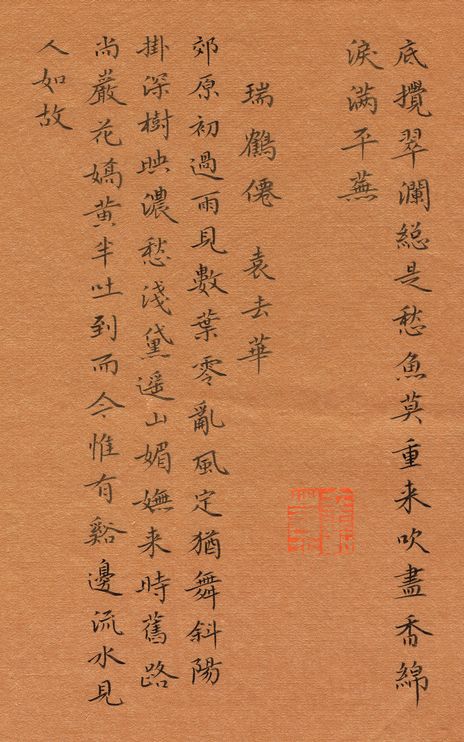 底攪翠瀾緫是愁魚莫重来吹盡香綿
淚滿平蕪
瑞鶴僊 袁去華
郊原初過雨見數葉零亂風定猶舞斜陽
掛深樹映濃愁淺黛遥山媚嫵来時舊路
尚巖花嬌黄半吐到而今惟有谿邊流水見
人如故